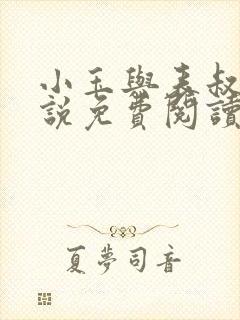 小玉與表叔
說免費閱讀
夏夢司音